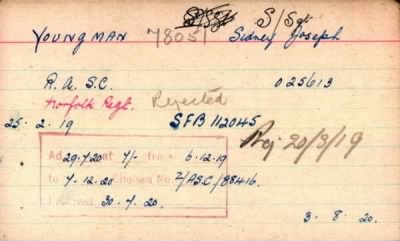 S/Sgt S/Sgt
YOUNGMAN 78051 Sidney Joseph
R.A.S.C. 025613
Norfolk Regt. Rejected
25-2.19 SFB 112045 Rej 20/3/19
Ad 29.7.20 at 7/- from 6.12.19
to 7.12.20 Chelsea No. 2/ASC/88416.
30.7.20.
3-8-20.